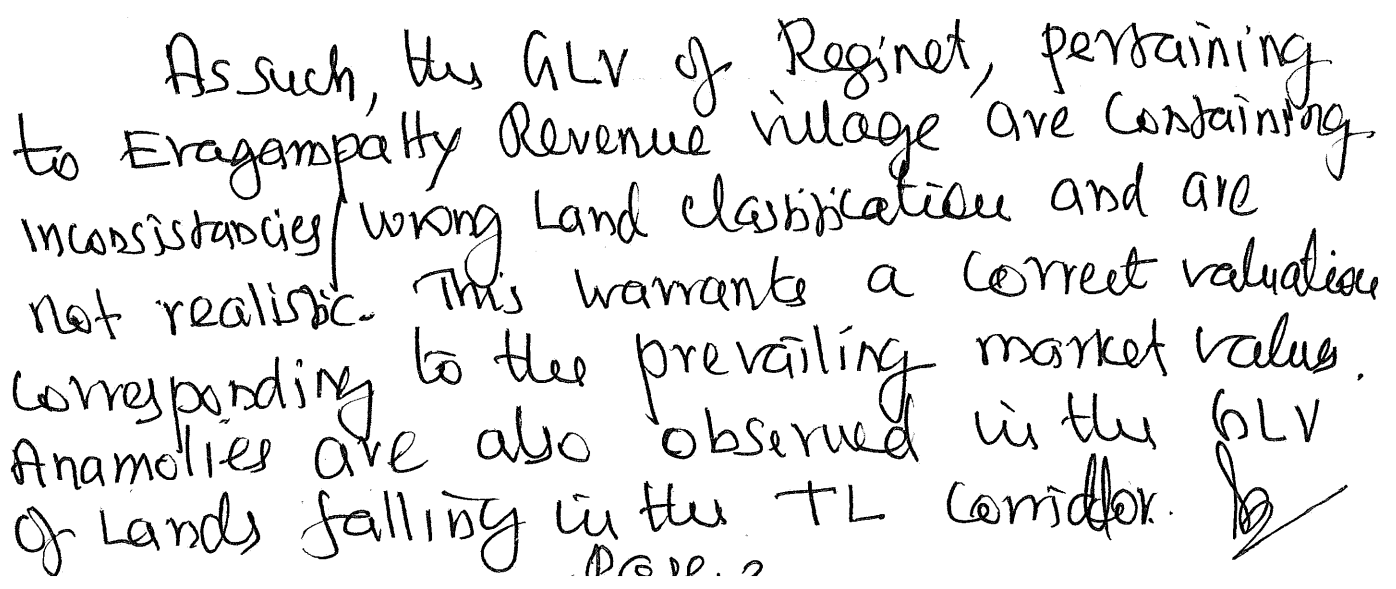 As such, the GLV of Reginet, pertaining
to Eragampatty Revenue village are containing
inconsistancies/wrong Land classification and are
not realistic. This warrants a correct valuation
corresponding to the prevailing market value.
Anamolies are also observed in the GLV
of Lands falling in the TL corridor.